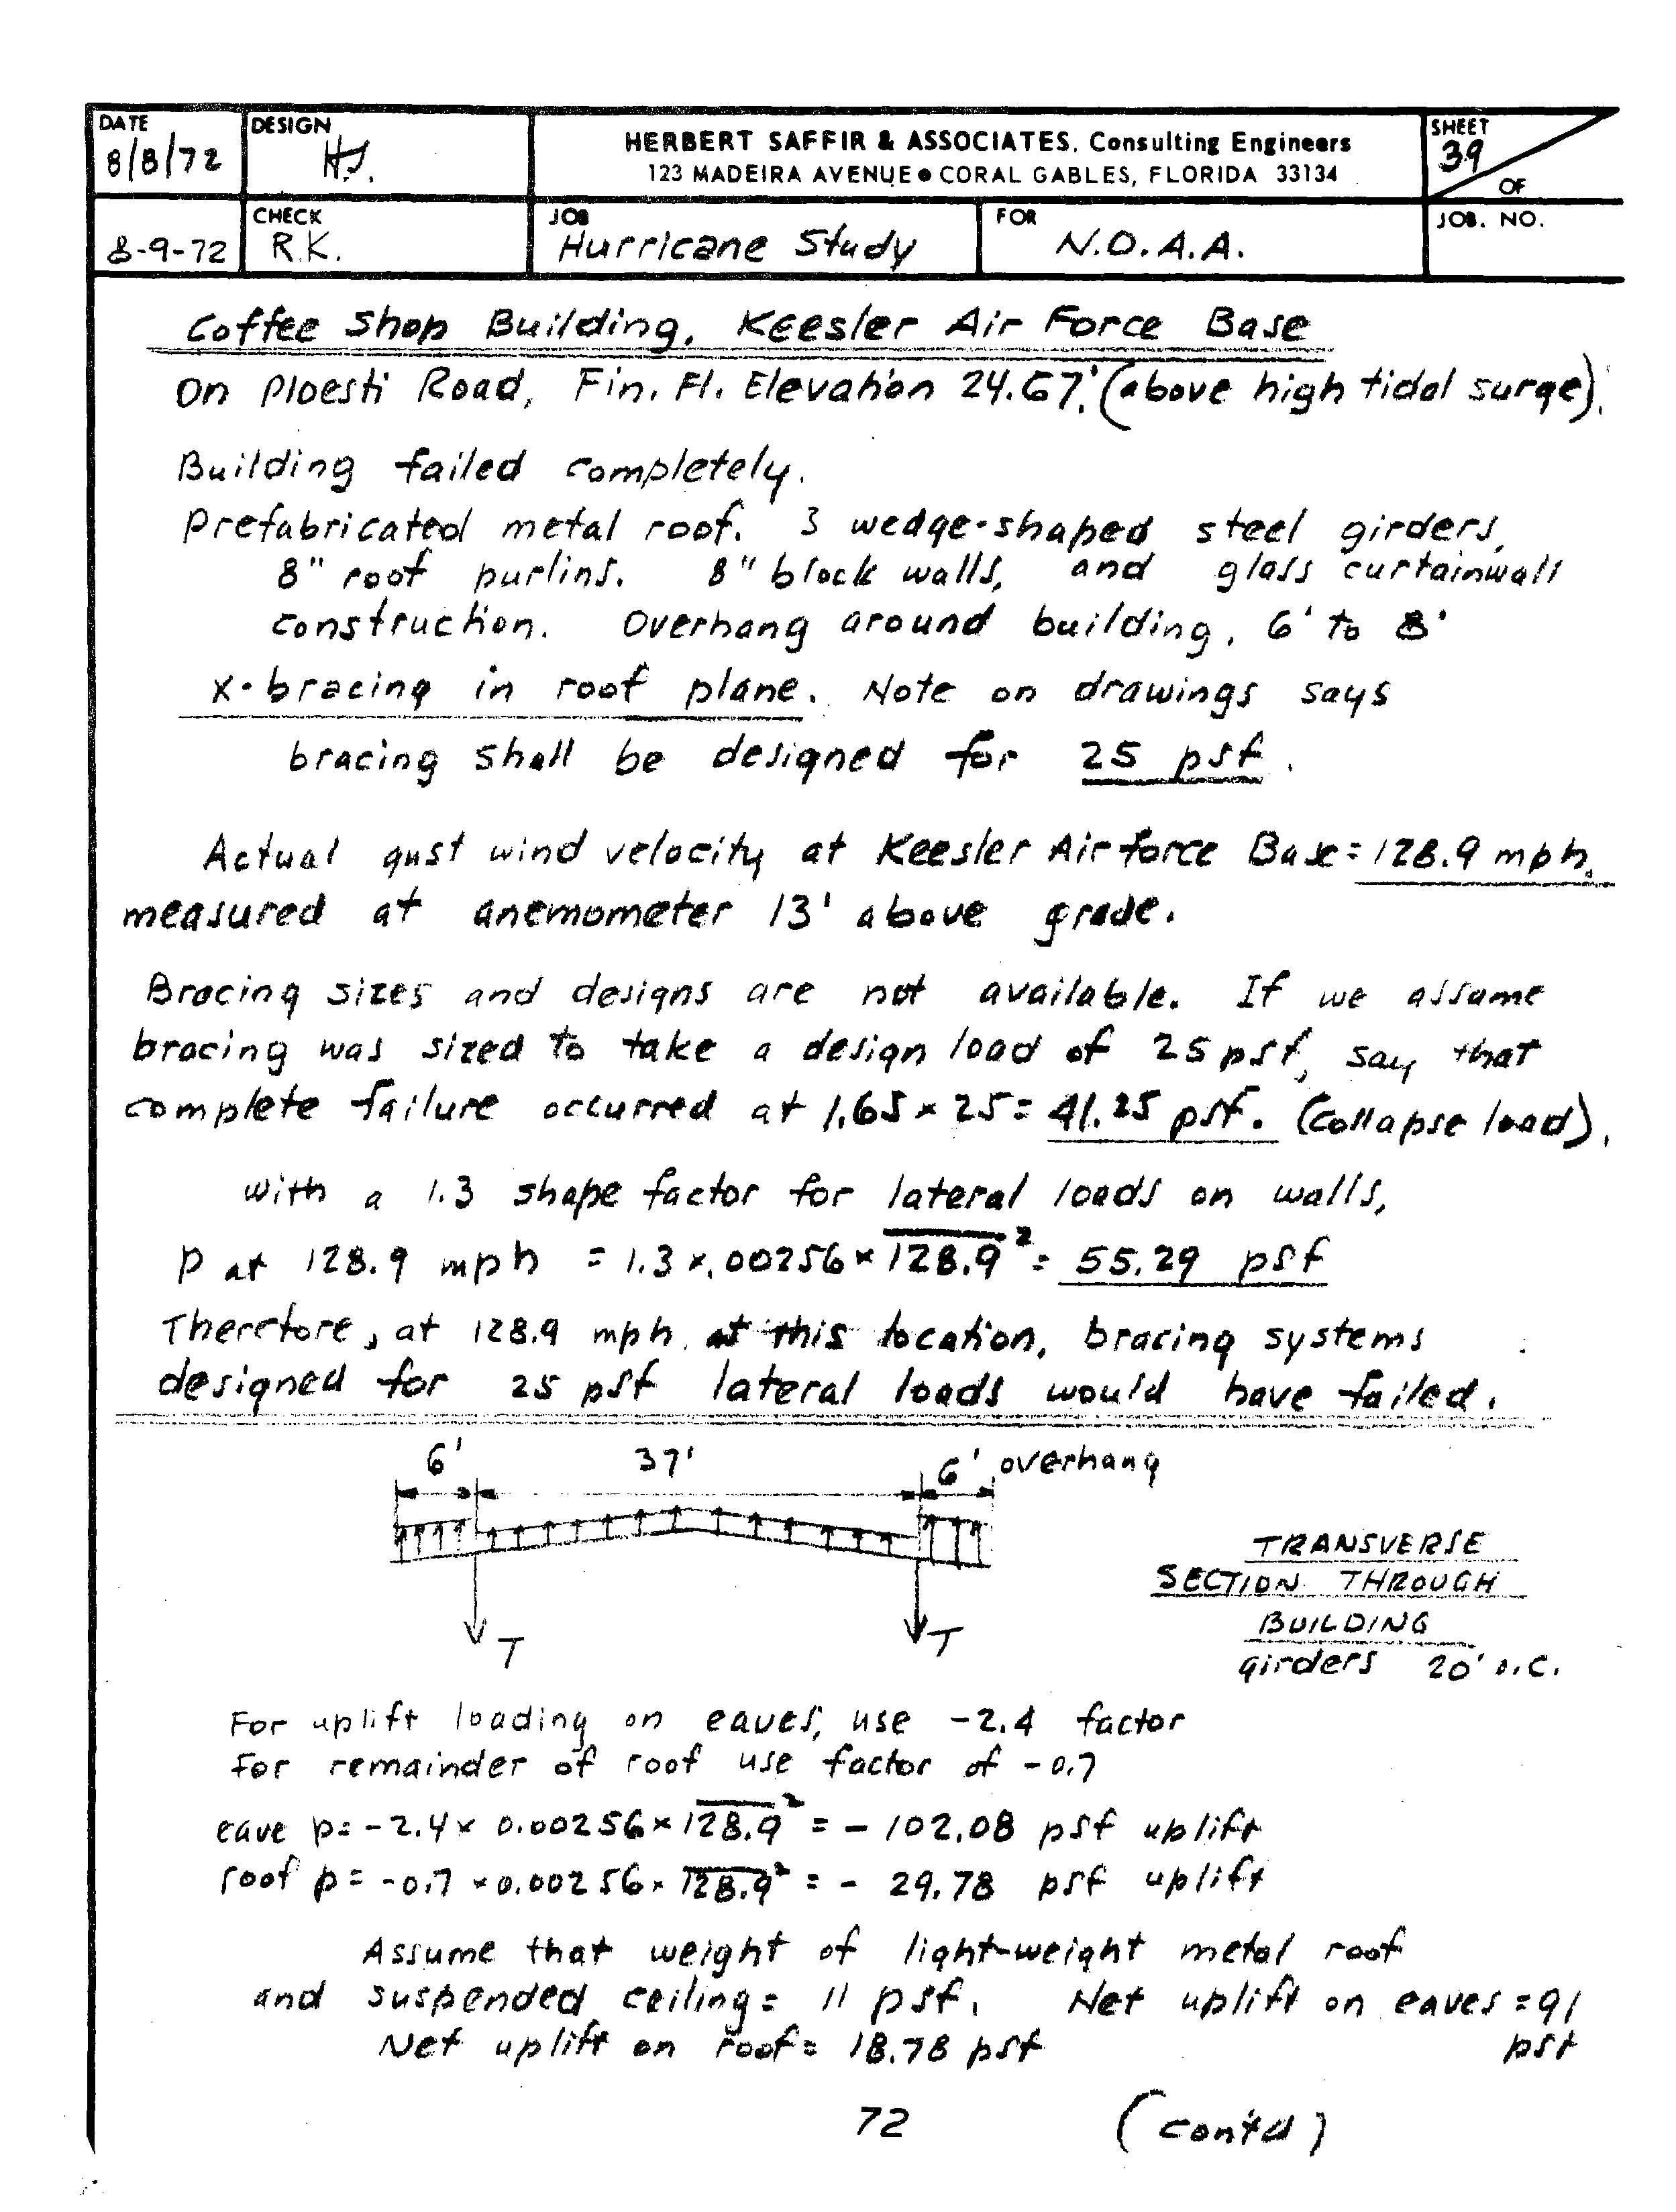 DATE
8/8/72
DESIGN
H.S.
HERBERT SAFFIR & ASSOCIATES, Consulting Engineers
123 MADEIRA AVENUE • CORAL GABLES, FLORIDA 33134
SHEET
39
OF
8-9-72
CHECK
R.K.
JOB
Hurricane Study
FOR
N.O.A.A.
JOB. NO.
Coffee Shop Building, Keesler Air Force Base
On Ploesti Road, Fin. Fl. Elevation 24.67'. (above high tidal surge).
Building failed completely.
Prefabricated metal roof. 3 wedge-shaped steel girders,
8" roof purlins. 8" block walls, and glass curtainwall
construction. Overhang around building, 6' to 8'
X-bracing in roof plane. Note on drawings says
bracing shall be designed for 25 psf.
Actual gust wind velocity at Keesler Air force Base = 128.9 mph,
measured at anemometer 13' above grade.
Bracing sizes and designs are not available. If we assume
bracing was sized to take a design load of 25 psf, say that
complete failure occurred at 1.65 × 25 = 41.25 psf. (Collapse load).
With a 1.3 shape factor for lateral loads on walls,
P at 128.9 mph = 1.3 x .00256 × 128.9² = 55.29 psf
Therefore, at 128.9 mph, at this location, bracing systems
designed for 25 psf lateral loads would have failed.
6' 37' 6' overhang
T T
TRANSVERSE
SECTION THROUGH
BUILDING
girders 20' o.c.
For uplift loading on eaves, use -2.4 factor
For remainder of roof use factor of -0.7
eave p = -2.4 × 0.00256 × 128.9² = - 102.08 psf uplift
roof p = -0.7 × 0.00256 × 128.9² = - 29.78 psf uplift
Assume that weight of light-weight metal roof
and suspended ceiling = 11 psf. Net uplift on eaves = 91
psf
Net uplift on roof = 18.78 psf
72
(cont'd)